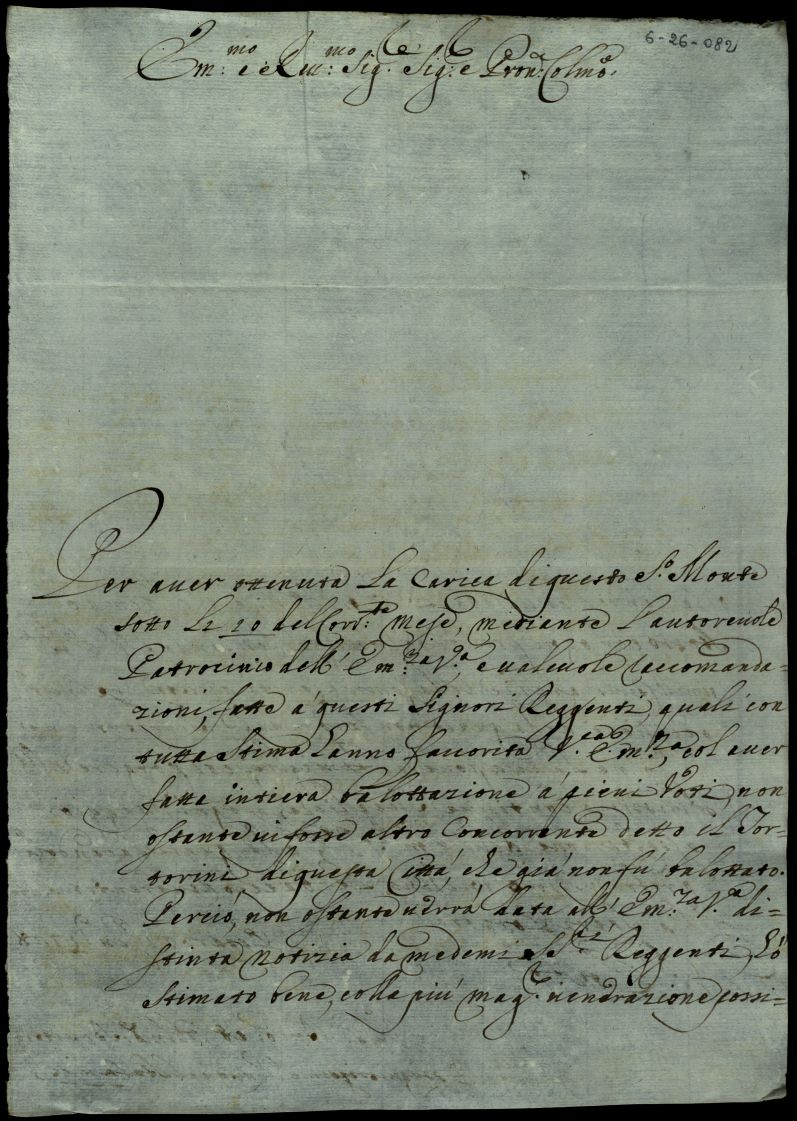 6-26-082
Em:mo e Rev:mo Sig.re Sig:r e Pron: Colmo.
Per aver ottenuta la Carica di questo S. Monte
sotto li 20 del Corr:te Mese, mediante l'autorevole
Patrocinio dell' Em:za V.a, e valevole raccomanda=
zioni, fatte a' questi Signori Reggenti, quali con
tutta stima hanno favorita V.ra Em:za, col aver
fatta intiera balottazione à pieni Voti, non
ostante vi fosse altro Concorrente detto il Tor=
torini di questa Città, che già non fù balottato.
Perciò, non ostante verrà data all' Em:za V.a di=
stinta notizia da medemi SS:ri Reggenti, hò
stimato bene, colla più mag.r venerazione possi=